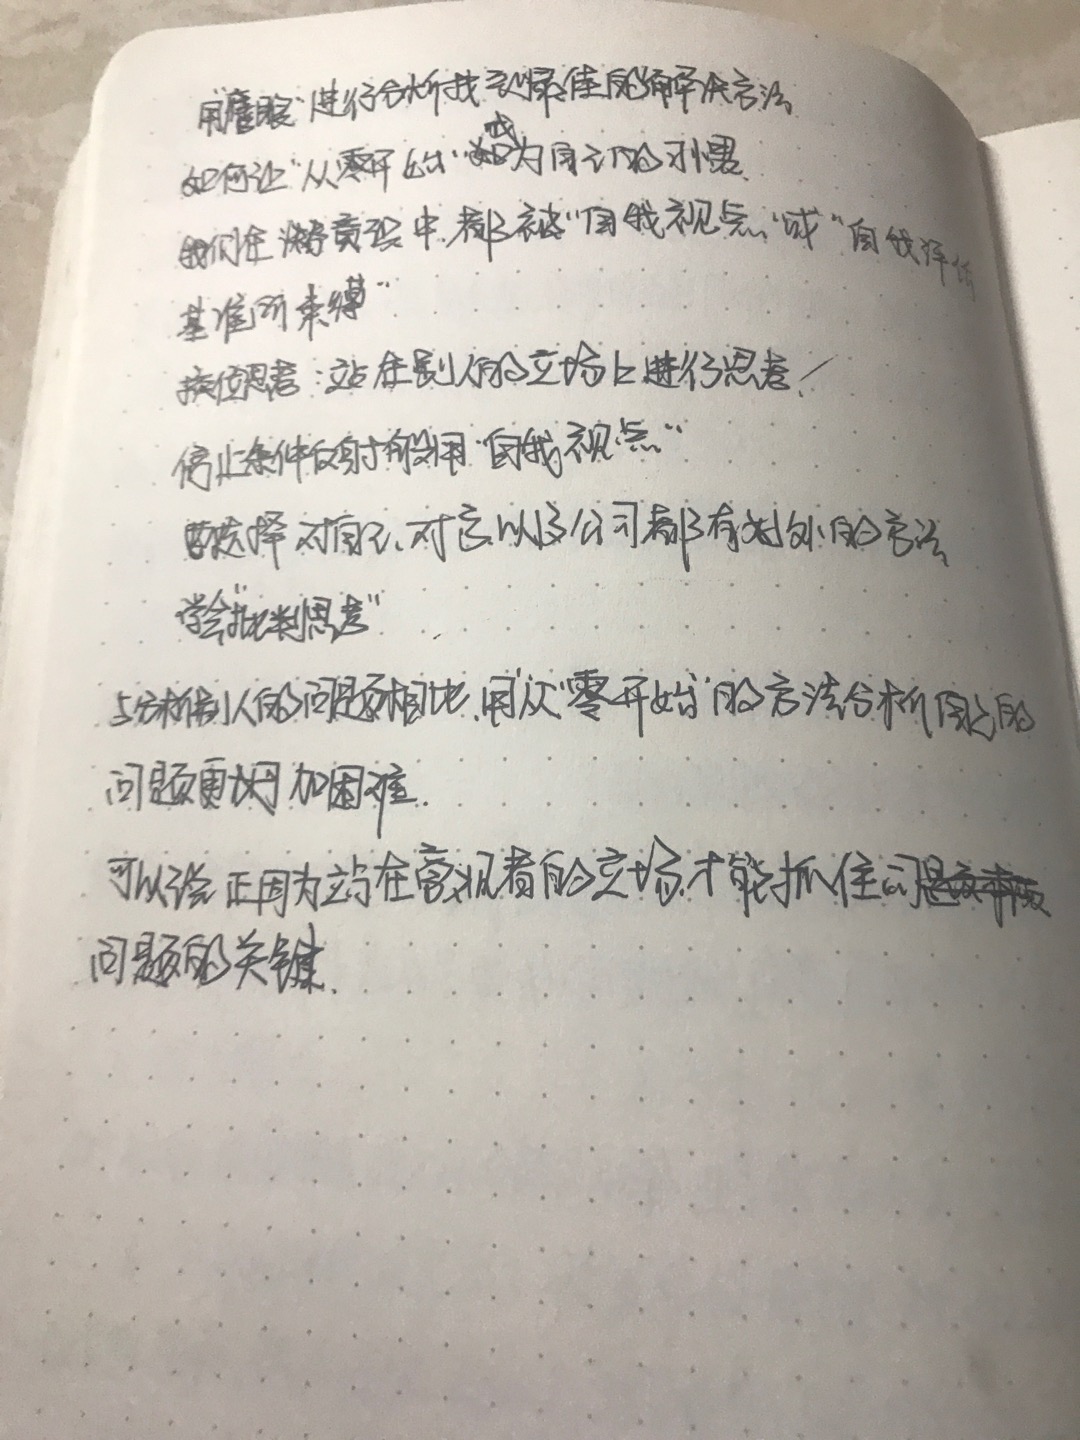 用"鹰眼"进行分析找到最佳的解决方法
如何让"从零开始"成为自己的习惯
我们在潜意识中都被"自我视点"或"自我评价
基准所束缚"
换位思考:站在别人的立场上进行思考
停止条件反射般用"自我视点"
要选择对自己、对 以及公司都有好处的方法
学会"批判思考"
与分析别人的问题相比,用"从零开始"的方法分析自己的
问题更加困难.
可以说正因为站在客观者的立场,才能抓住
问题的关键.